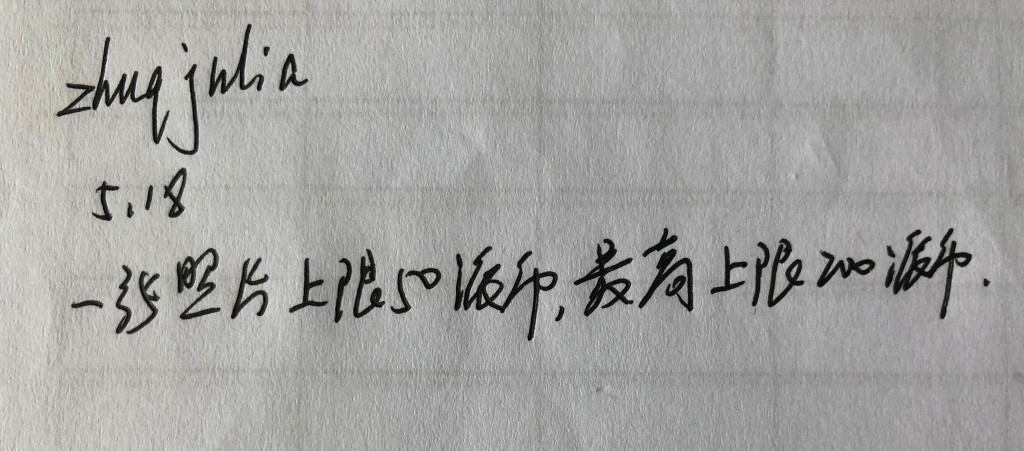 zhuqjulia
5.18
一张照片上限50派币,最高上限200派币.